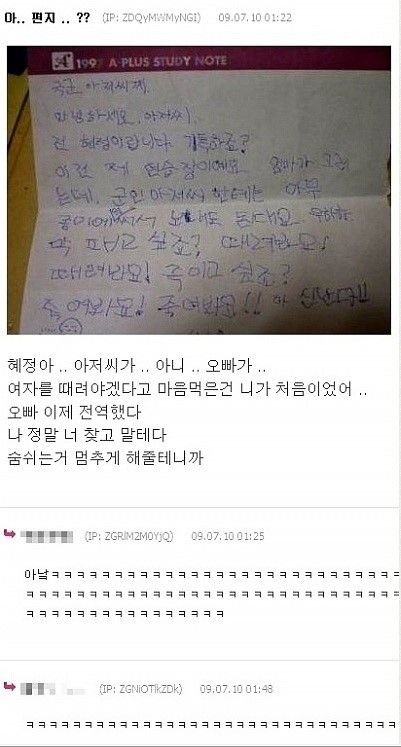 아.. 편지 .. ?? (IP: ZDQyMWMyNGI) 09.07.10 01:22
1997 A-PLUS STUDY NOTE
국군 아저씨께,
안녕하세요, 아저씨.
전 혜정이랍니다. 기특하죠?
이건 제 연습장이에요. 엄마가 그러
는데, 군인아저씨 한테는 아무
종이에 써서 보내도 된대요.
막 패고 싶죠? 때려봐요!
때려봐요! 죽이고 싶죠?
죽여봐요! 죽여봐요!! 아
혜정아 .. 아저씨가 .. 아니 .. 오빠가 ..
여자를 때려야겠다고 마음먹은건 니가 처음이었어 ..
오빠 이제 전역했다
나 정말 너 찾고 말테다
숨쉬는거 멈추게 해줄테니까
(IP: ZGRiM2M0YjQ) 09.07.10 01:25
아낰ㅋㅋㅋㅋㅋㅋㅋㅋㅋㅋㅋㅋㅋㅋㅋㅋㅋㅋㅋㅋㅋㅋ
ㅋㅋㅋㅋㅋㅋㅋㅋㅋㅋㅋㅋㅋㅋㅋㅋㅋㅋㅋㅋㅋㅋㅋ
ㅋㅋㅋㅋㅋㅋㅋㅋㅋㅋㅋㅋ
(IP: ZGNiOTlkZDk) 09.07.10 01:48
ㅋㅋㅋㅋㅋㅋㅋㅋㅋㅋㅋㅋㅋㅋㅋㅋㅋㅋㅋㅋㅋㅋㅋ